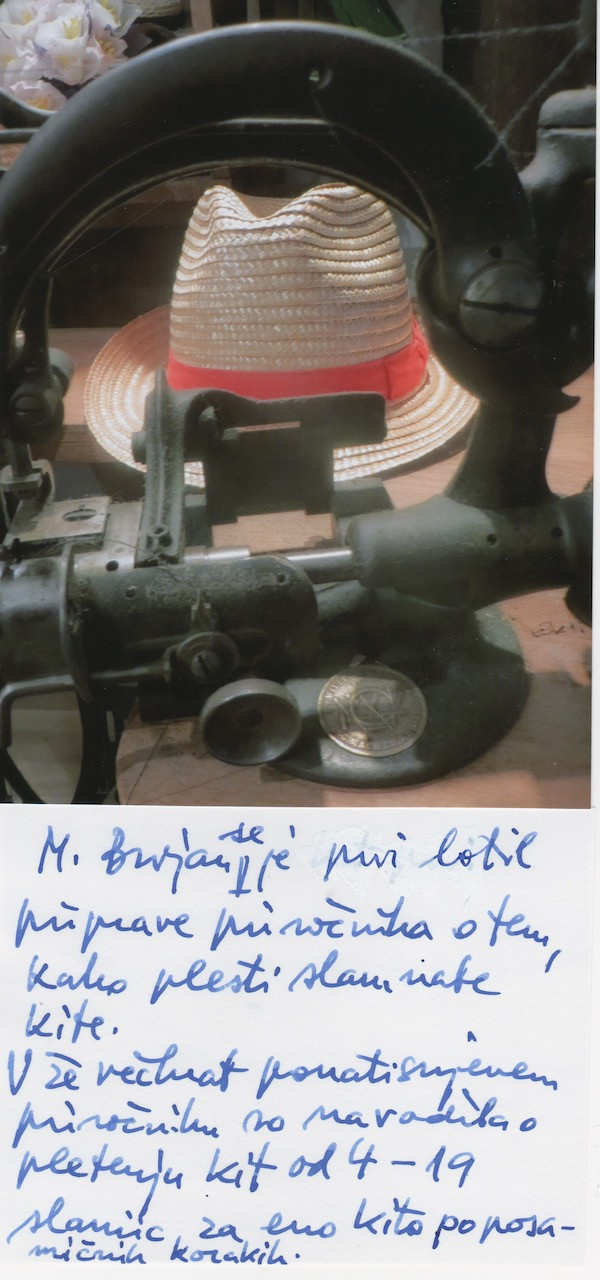 M. Brojan se je prvi lotil
priprave priročnika o tem,
kako plesti slamnate
kite.
V že večkrat ponatisnjenem
priročniku so navodila o
pletenju kit od 4 – 19
slamic za eno kito po posa-
mičnih korakih.